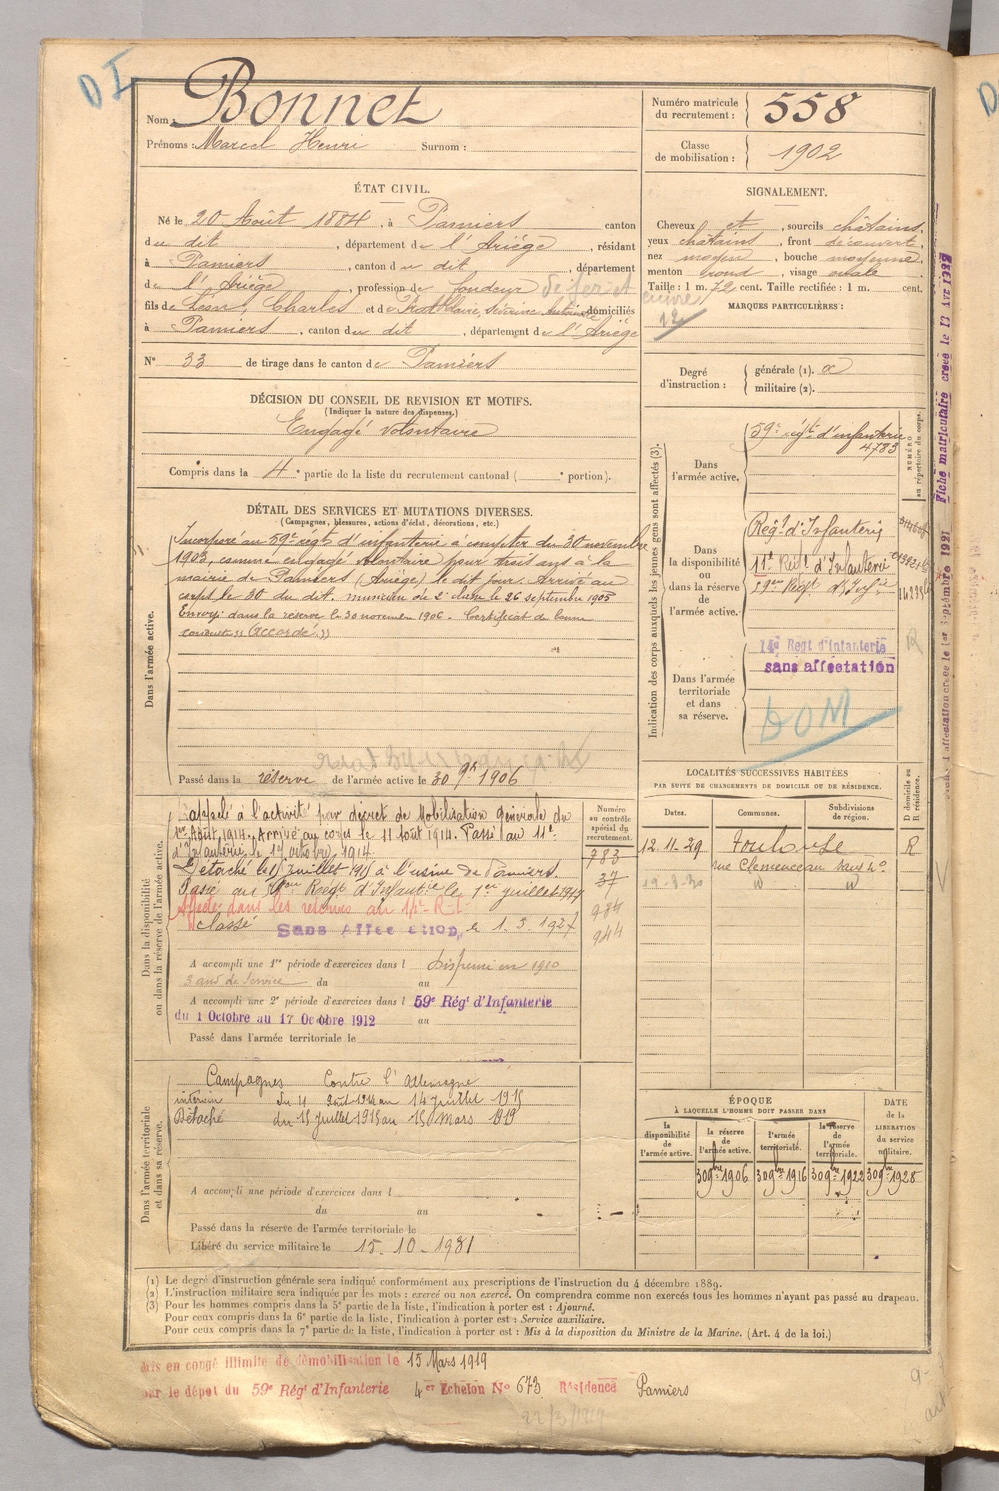 D I
Nom : Bonnet
Prénoms : Marcel Henri Surnom :
Numéro matricule du recrutement : 558
Classe de mobilisation : 1902
ÉTAT CIVIL.
Né le 20 Août 1884, à Pamiers canton
du dit, département de l'Ariège, résidant
à Pamiers, canton du dit, département
de l'Ariège, profession de fondeur de fer et cuivre
fils de Léon, Charles et de domiciliés
à Pamiers, canton du dit, département de l'Ariège
N° 33 de tirage dans le canton de Pamiers
SIGNALEMENT.
Cheveux et, sourcils châtains,
yeux châtains, front découvert,
nez moyen, bouche moyenne,
menton rond, visage ovale
Taille : 1 m. 72 cent. Taille rectifiée : 1 m. cent.
MARQUES PARTICULIÈRES :
12
Degré d'instruction : générale (1).
militaire (2).
DÉCISION DU CONSEIL DE REVISION ET MOTIFS.
(Indiquer la nature des dispenses.)
Engagé volontaire
Compris dans la 4e partie de la liste du recrutement cantonal ( e portion).
DÉTAIL DES SERVICES ET MUTATIONS DIVERSES.
(Campagnes, blessures, actions d'éclat, décorations, etc.)
Dans l'armée active.
Incorporé au 59e régt d'infanterie à compter du 30 novembre
1903, comme engagé volontaire pour trois ans à la
mairie de Pamiers (Ariège) le dit jour. Arrivé au
corps le 30 du dit, musicien de 2e classe le 26 septembre 1905
Envoyé dans la réserve le 30 novembre 1906. Certificat de bonne
conduite "Accordé."
Passé dans la réserve de l'armée active le 30 9bre 1906
Indication des corps auxquels les jeunes gens sont affectés (3).
NUMÉRO au répertoire du corps.
Dans l'armée active.
59e régt d'infanterie
4783
Dans la disponibilité ou dans la réserve de l'armée active.
Régt d'Infanterie
11e Régt d'Infanterie
Dans l'armée territoriale et dans sa réserve.
14e Regt d'Infanterie
sans affectation
R
DOM
Fiche matriculaire créée le 13 Avr 1932
affectation créée le 1er Septembre 1921
Dans la disponibilité ou dans la réserve de l'armée active.
Rappelé à l'activité par décret de Mobilisation générale du
1er Août 1914. Arrivé au corps le 11 août 1914. Passé au 11e
d'Infanterie le 1er octobre 1914.
Détaché le 15 juillet 1915 à l'usine de Pamiers.
Passé au Régt d'Infantie le 1er juillet 1917
Affecté dans les réserves au 14e R.I.
Classé Sans Affectation, le 1.3.1927
Numéro au contrôle spécial du recrutement.
783
37
984
944
A accompli une 1re période d'exercices dans l Dispensé en 1910
3 ans de service du au
A accompli une 2e période d'exercices dans l 59e Régt d'Infanterie
du 1 Octobre au 17 Octobre 1912 au
Passé dans l'armée territoriale le
LOCALITÉS SUCCESSIVES HABITÉES
PAR SUITE DE CHANGEMENTS DE DOMICILE OU DE RÉSIDENCE.
D domicile ou R résidence.
Dates. Communes. Subdivisions de région.
12.11.29 Toulouse R
rue Clemenceau sans n°
19-3-30
Dans l'armée territoriale et dans sa réserve.
Campagnes Contre l'Allemagne
intérieur du 11 août 1914 au 14 juillet 1915
Détaché du 15 juillet 1915 au 15 mars 1919
A accompli une période d'exercices dans l
du au
Passé dans la réserve de l'armée territoriale le
Libéré du service militaire le 15-10-1931
ÉPOQUE
À LAQUELLE L'HOMME DOIT PASSER DANS
la disponibilité de l'armée active.
la réserve de l'armée active.
l'armée territoriale.
la réserve de l'armée territoriale.
DATE de la LIBÉRATION du service militaire.
30 9bre 1906 30 9bre 1916 30 9bre 1922 30 9bre 1928
(1) Le degré d'instruction générale sera indiqué conformément aux prescriptions de l'instruction du 4 décembre 1889.
(2) L'instruction militaire sera indiquée par les mots : exercé ou non exercé. On comprendra comme non exercés tous les hommes n'ayant pas passé au drapeau.
(3) Pour les hommes compris dans la 5e partie de la liste, l'indication à porter est : Ajourné.
Pour ceux compris dans la 6e partie de la liste, l'indication à porter est : Service auxiliaire.
Pour ceux compris dans la 7e partie de la liste, l'indication à porter est : Mis à la disposition du Ministre de la Marine. (Art. 4 de la loi.)
Mis en congé illimité de démobilisation le 15 Mars 1919
par le dépôt du 59e Rég' d'Infanterie 4er Echelon N° 673 Résidence Pamiers
22/3/1919